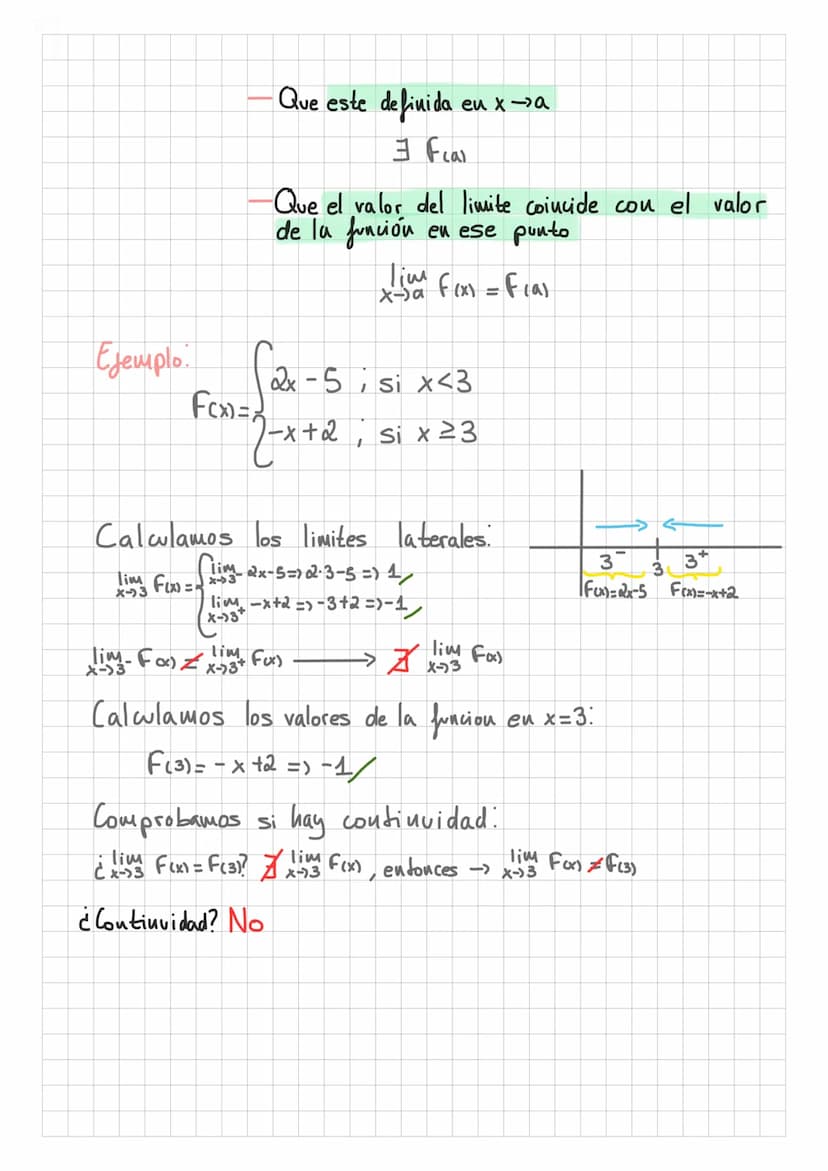 — Que este definida en x→a
∃ F(a)
— Que el valor del limite coincide con el valor
de la función en ese punto
lim x→a F(x) = F(a)
Ejemplo:
F(x) = { 2x - 5 ; si x<3
-x+2 ; si x ≥ 3
Calculamos los limites laterales:
lim x→3 F(x) = { lim x→3⁻ 2x-5 => 2·3-5 => 1
lim x→3⁺ -x+2 => -3+2 => -1
3⁻ 3 3⁺
F(x)=2x-5 F(x)=-x+2
lim x→3⁻ F(x) ≠ lim x→3⁺ F(x) → ∄ lim x→3 F(x)
Calculamos los valores de la funcion en x=3:
F(3) = - x +2 => -1
Comprobamos si hay continuidad:
¿ lim x→3 F(x) = F(3)? ∄ lim x→3 F(x), entonces → lim x→3 F(x) ≠ F(3)
¿Continuidad? No